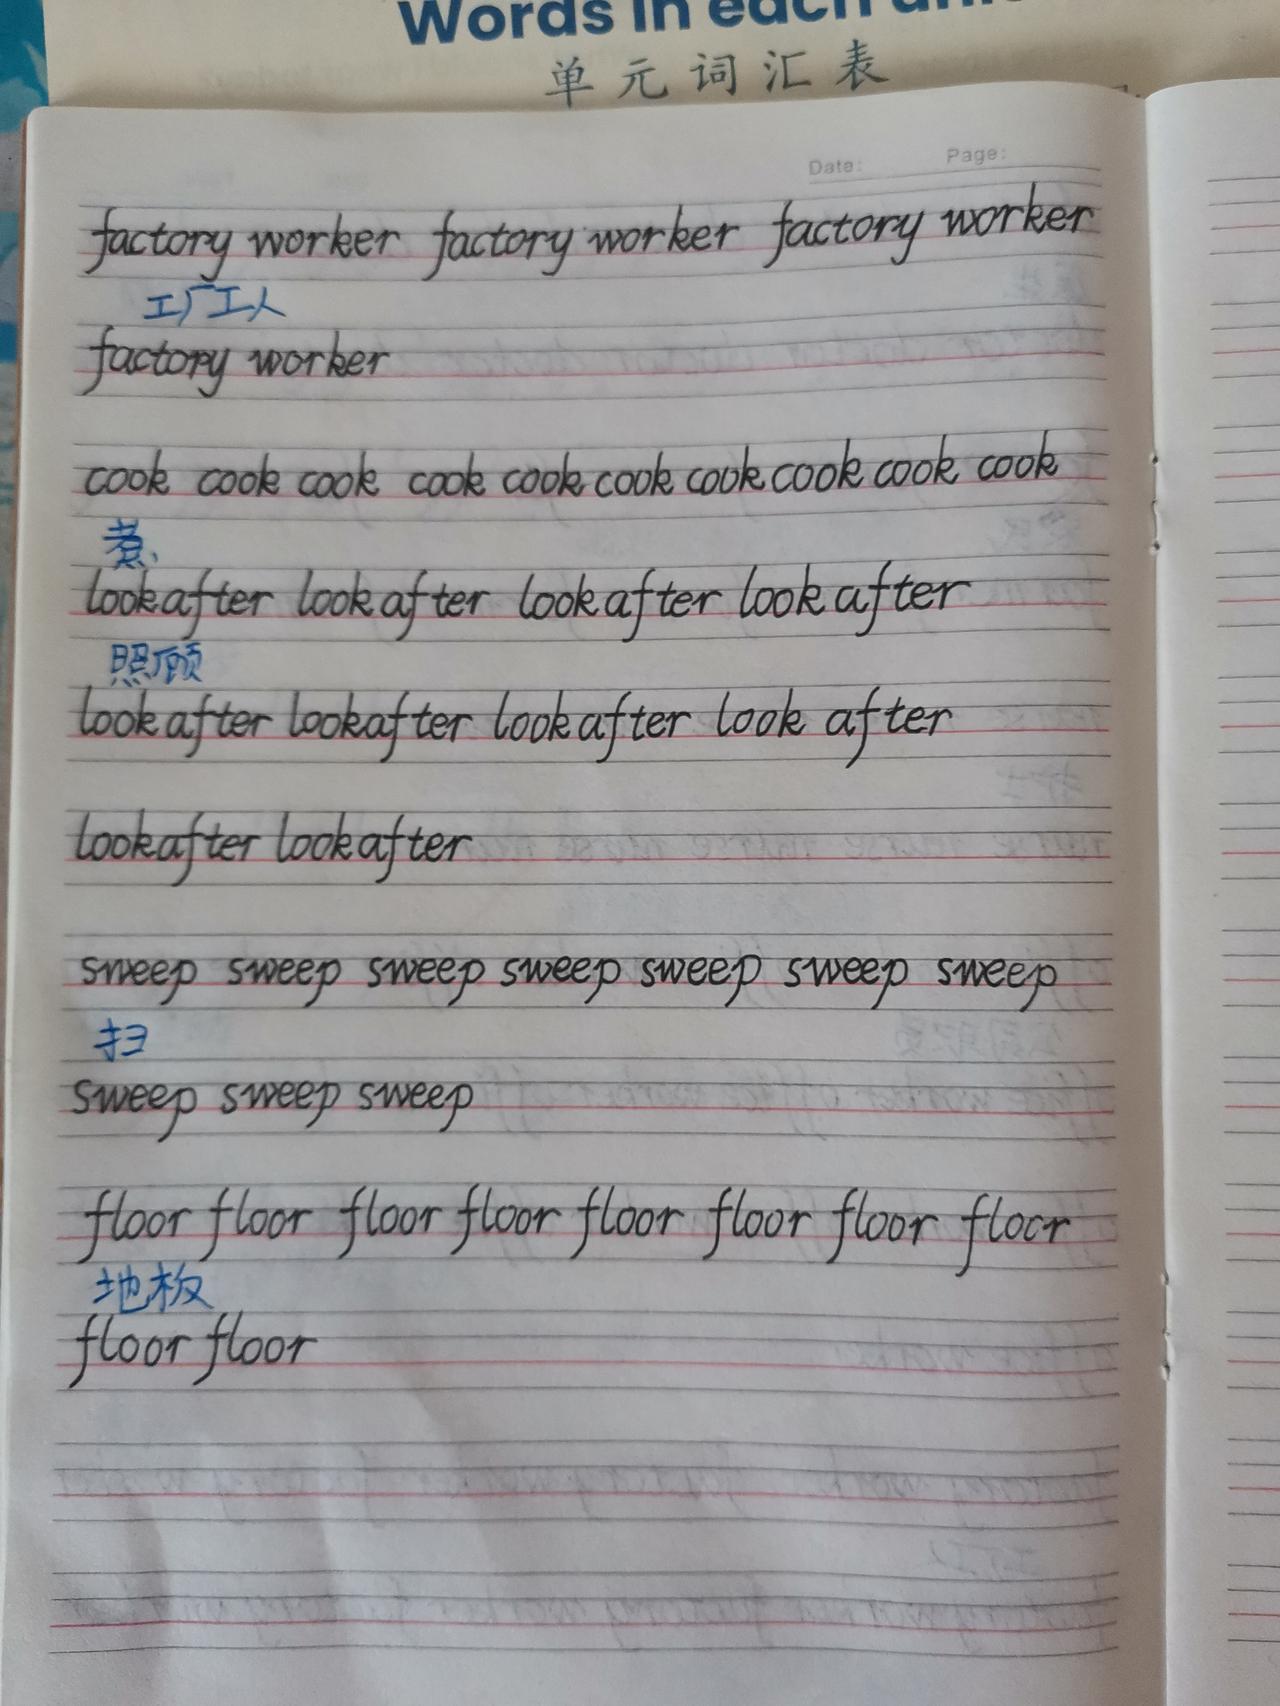 Words in each
单元词汇表
Date: Page:
factory worker factory worker factory worker
工厂工人
factory worker
cook cook cook cook cook cook cook cook cook cook
煮、
look after look after look after look after
照顾
look after look after look after look after
look after look after
sweep sweep sweep sweep sweep sweep sweep
扫
sweep sweep sweep
floor floor floor floor floor floor floor floor
地板
floor floor